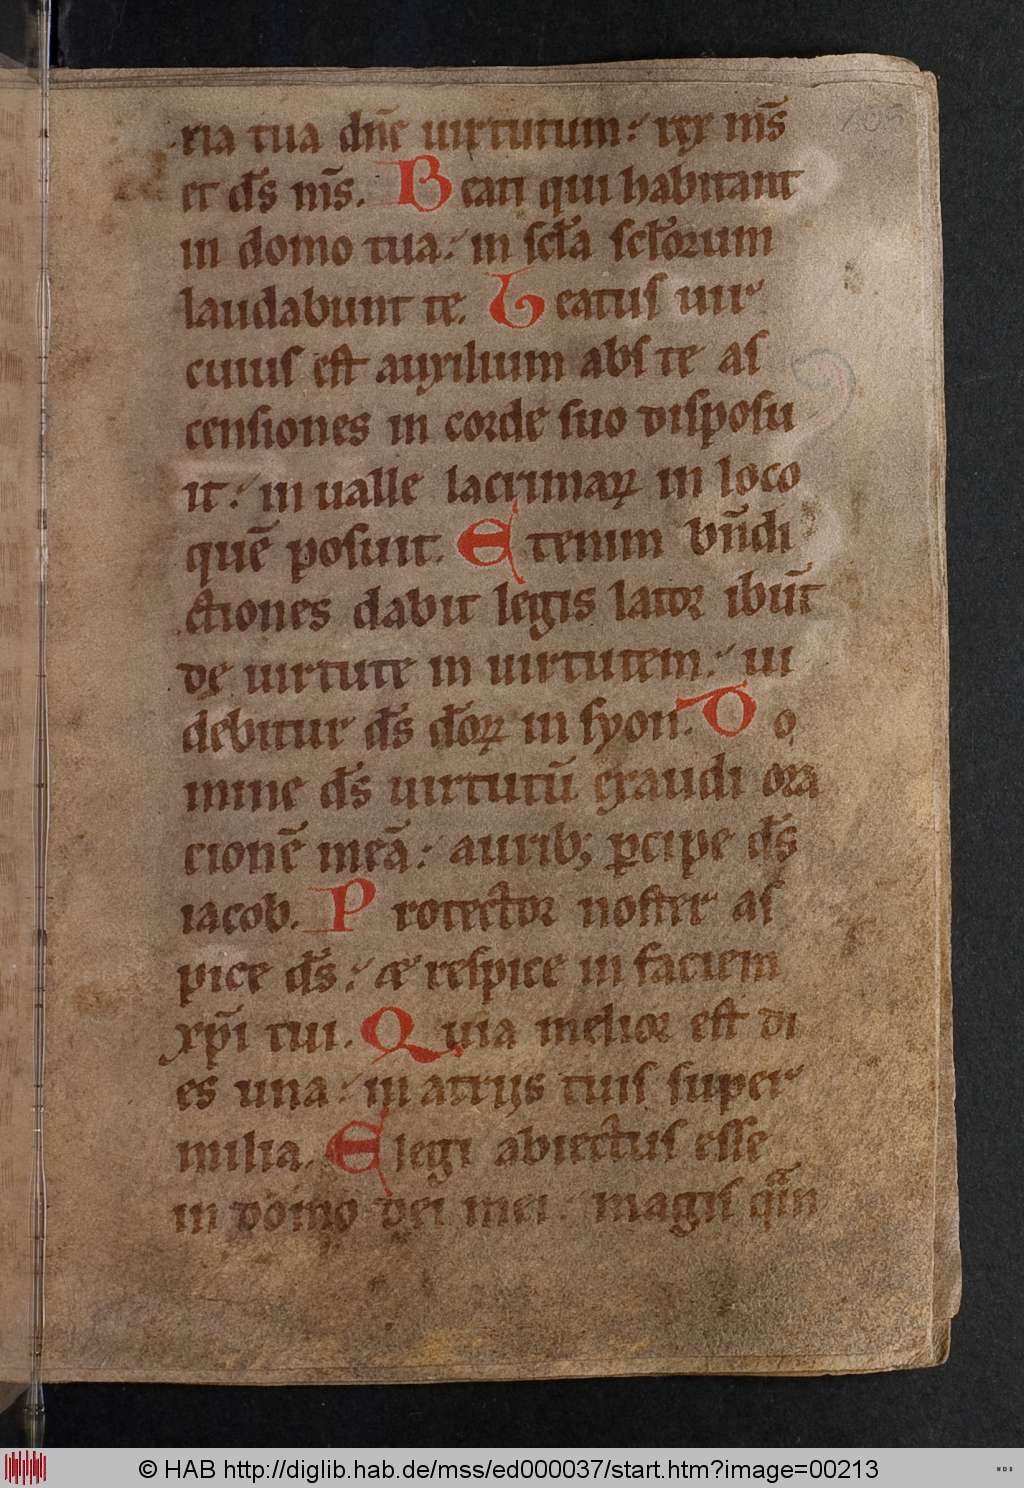 ria tua dn̄e uirtutum: rex m̄s
et ds̄ m̄s. Beati qui habitant
in domo tua: in scl̄a scl̄orum
laudabunt te. Beatus uir
cuius est auxilium abs te as
censiones in corde suo disposu
it: in ualle lacrimaꝝ in loco
quē posuit. Etenim bn̄di
ctiones dabit legis lator ibūt
de uirtute in uirtutem: ui
debitur ds̄ d̄oꝝ in syon. Do
mine ds̄ uirtutū exaudi ora
cionē meā: aurib; ꝑcipe ds̄
iacob. Protector noster as
pice ds̄: & respice in faciem
xp̄i tui. Quia melior est di
es una: in atrijs tuis super
milia. Elegi abiectus esse
in domo dei mei: magis qᵃm
105
© HAB http://diglib.hab.de/mss/ed000037/start.htm?image=00213